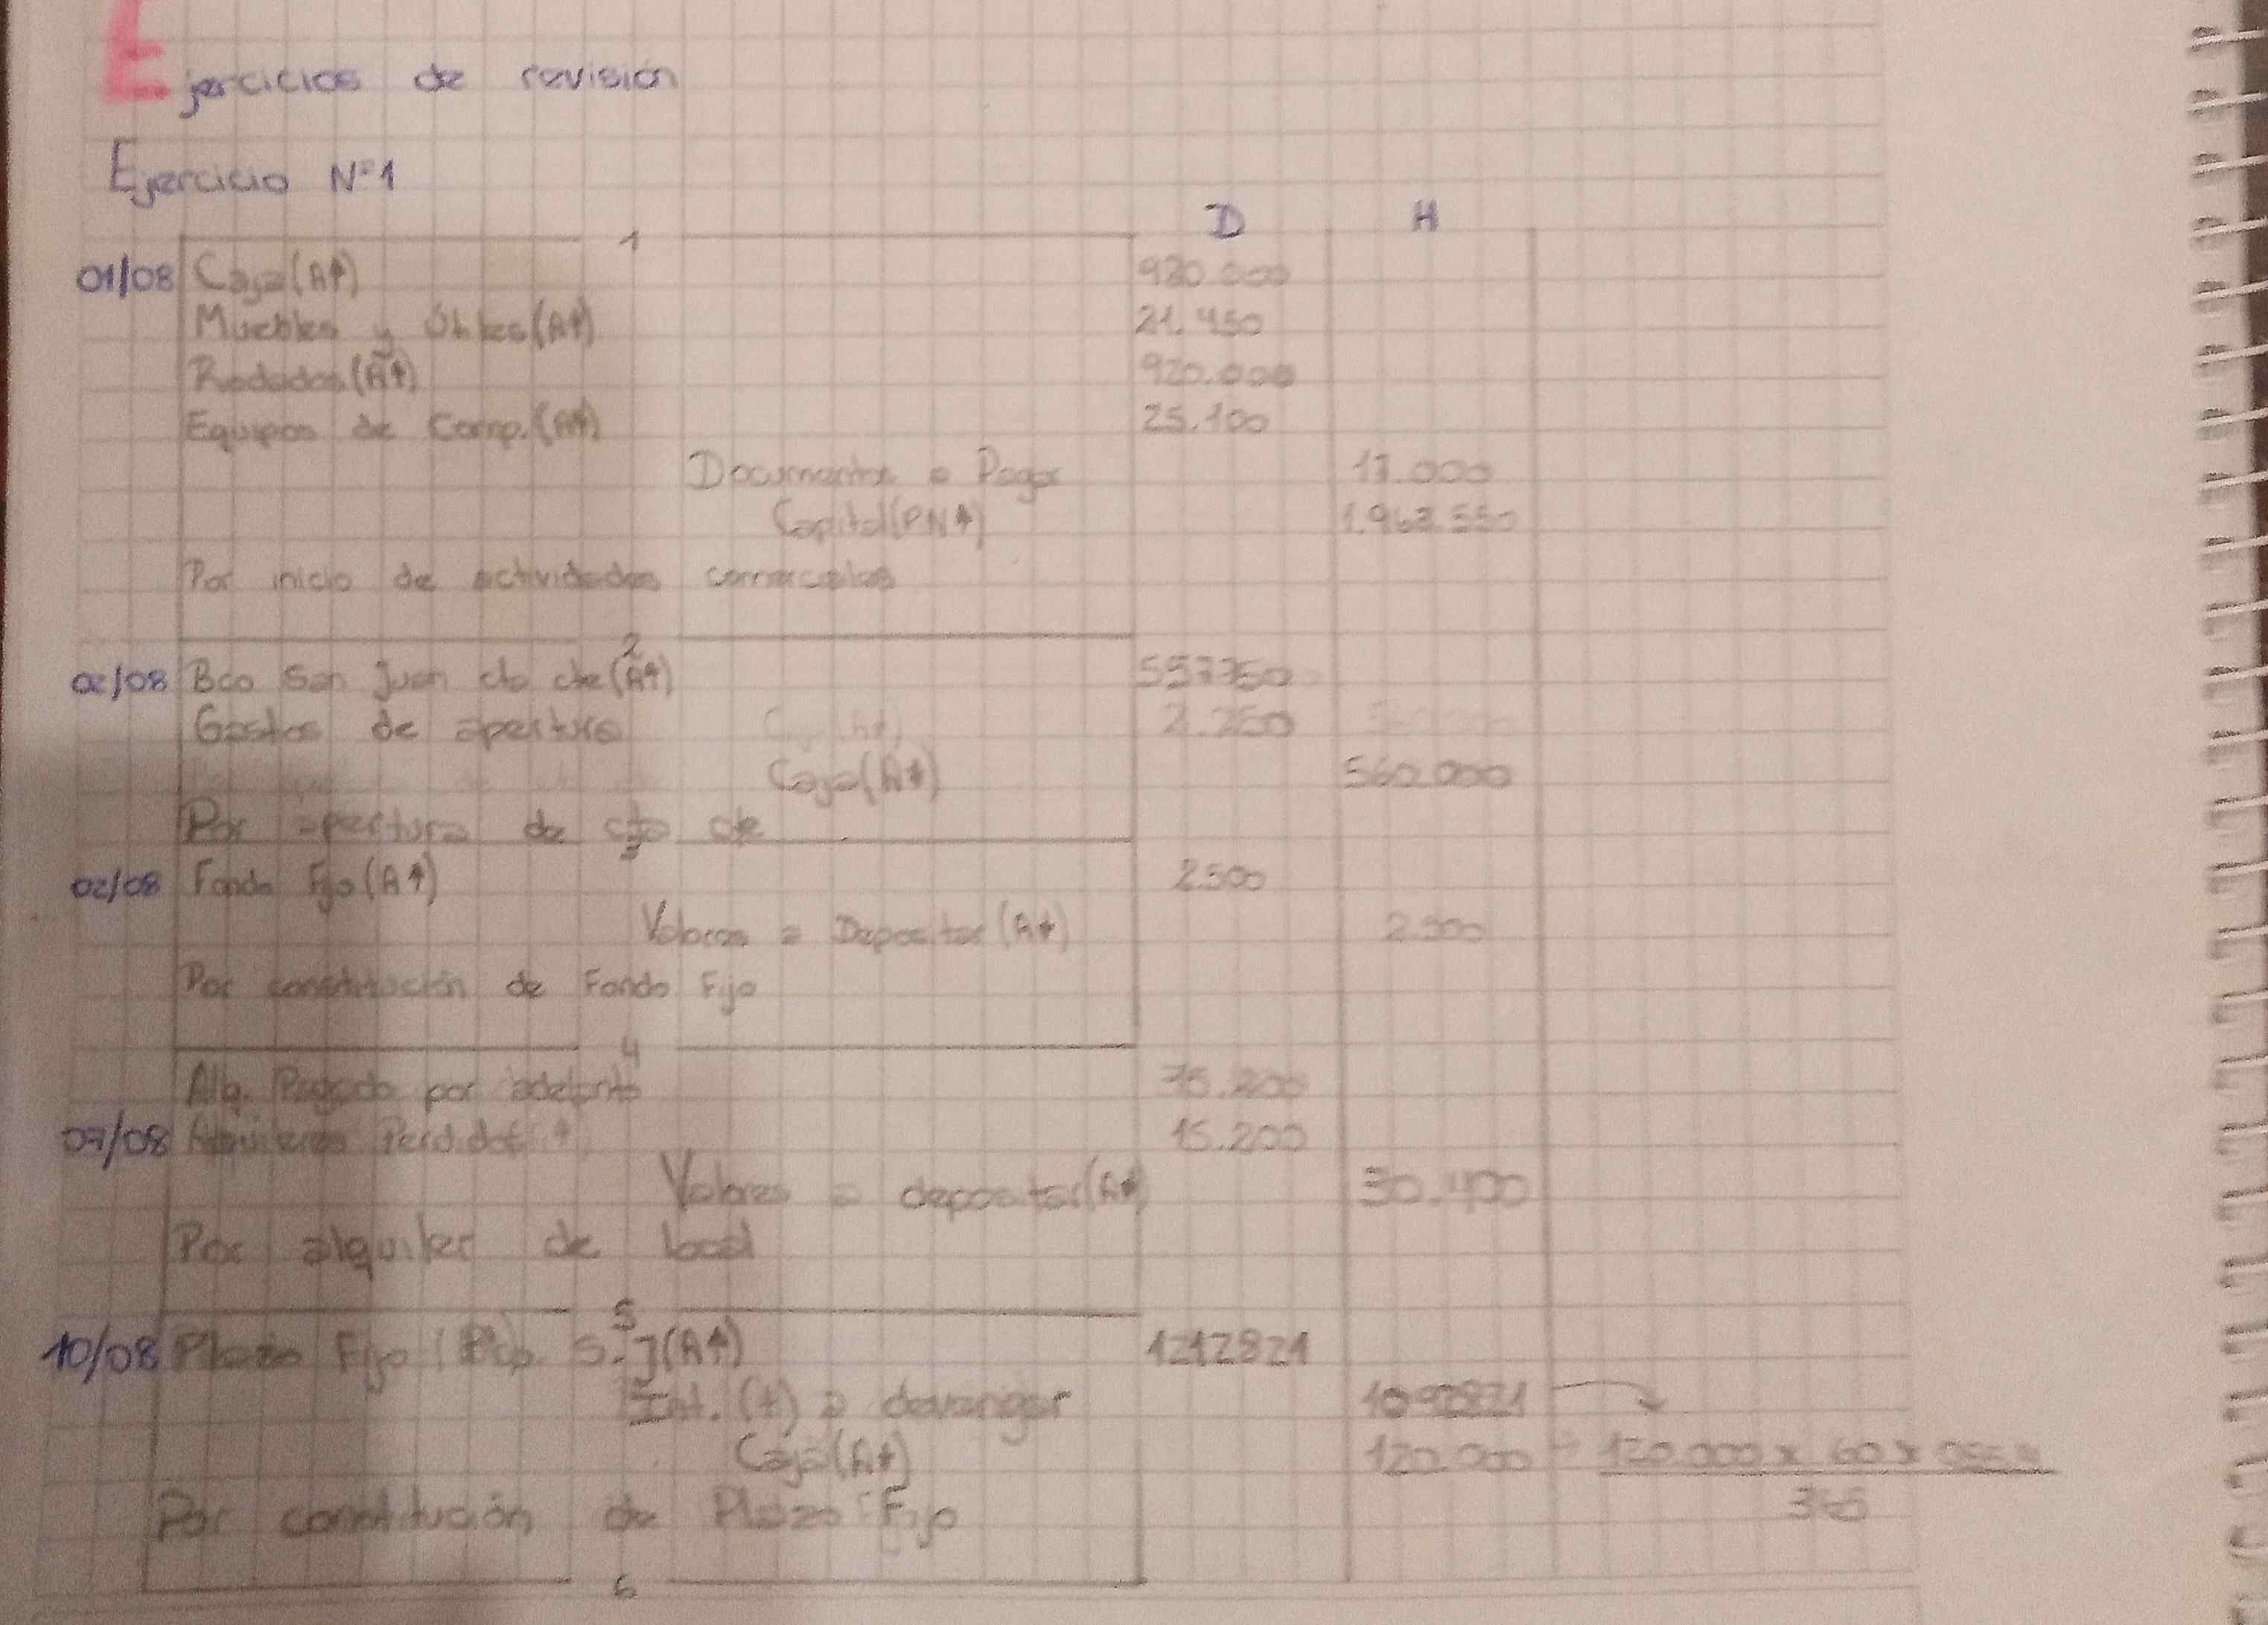 Ejercicios de revisión
Ejercicio Nº1
D H
1
01/08 Caja (A↑) 920.000
Muebles y Útiles (A↑) 21.450
Rodados (A↑) 920.000
Equipos de Comp. (A↑) 25.100
Documentos a Pagar 17.000
Capital (PN↑)
Por inicio de actividades comerciales
2
02/08 Bco San Juan cta cte (A↑) 557750
Gastos de apertura 2.250
Caja (A↓) 560.000
Por apertura de cta cte
3
02/08 Fondo Fijo (A↑) 2.500
Valores a Depositar (A↓) 2.500
Por constitución de Fondo Fijo
4
Alq. Pagado por adelanto 15.200
07/08 Alquileres Perdidos 15.200
Valores a depositar (A↓) 30.400
Por alquiler de local
5
10/08 Plazo Fijo (Bco S.J (A↑) 1212821
Int. (+) a devengar 1092821
Caja (A↓) 120.000 120.000 x 60 x
365
Por constitución de Plazo Fijo
6